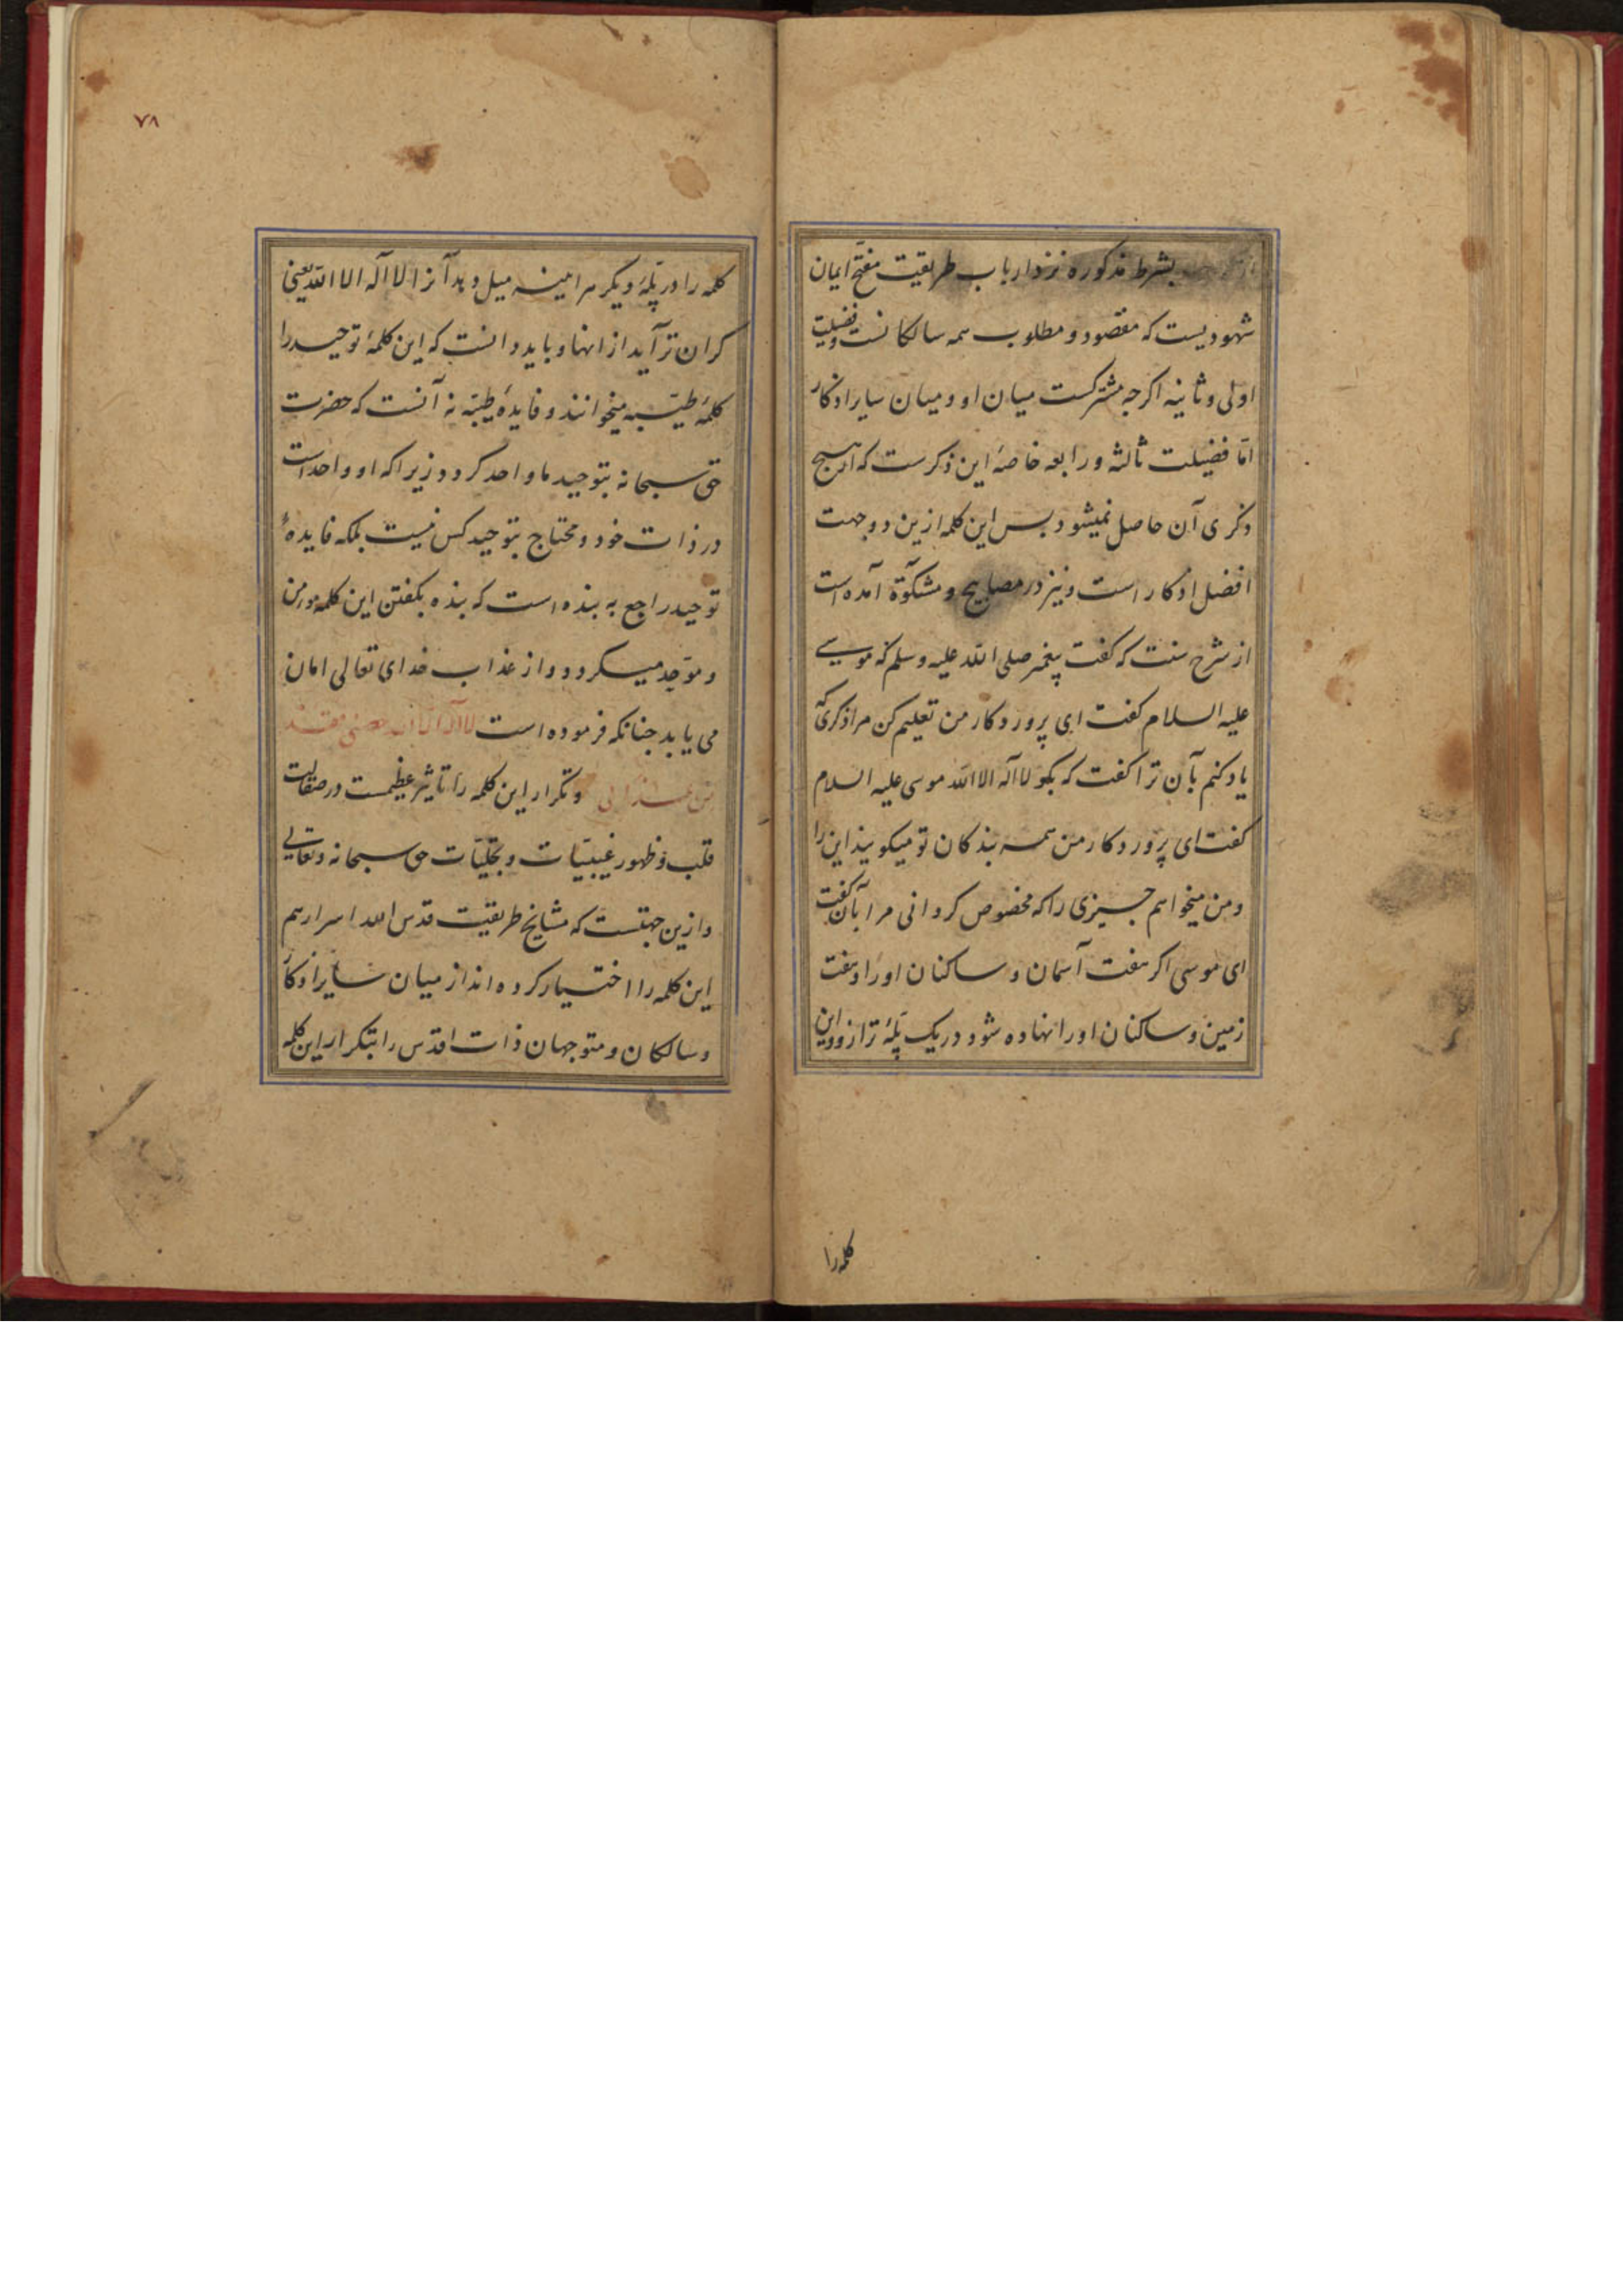 بشرط مذکوره نزد ارباب طریقت مفتح ایمان
شهودیست که مقصود و مطلوب همه سالکانست و فضیلت
اولی و ثانیه اکرجه مشترکست میان او و میان سایر اذکار
امّا فضیلت ثالثه و رابعه خاصهٔ این ذکرست که از هیچ
ذکری آن حاصل نمیشود بس این کلمه ازین دو جهت
افضل اذکار است و نیز در مصابیح و مشکوة آمده است
از شرح سنت که کفت پیغمبر صلی الله علیه وسلم که موسی
علیه السلام کفت ای پروردکار من تعلیم کن مرا ذکری که
یاد کنم بآن ترا کفت که بکو لا اله الا الله موسی علیه السلام
کفت ای پروردکار من همه بندکان تو میکویند این را
و من میخواهم جیزی را که مخصوص کردانی مرا بآن کفت
ای موسی اکر هفت آسمان و ساکنان او را و هفت
زمین و ساکنان او را نهاده شود در یک پلهٔ ترازو و این
کلمه را
۷۸
کلمه را در پلهٔ دیکر هر اینه میل دهد آنرا لا اله الا الله یعنی
کران تر آید از انها و باید دانست که این کلمهٔ توحید را
کلمهٔ طیّبه میخوانند و فایدهٔ طیبّه نه آنست که حضرت
حق سبحانه بتوحید ما واحد کردد زیرا که او واحد است
در ذات خود و محتاج بتوحید کس نیست بلکه فایدهٔ
توحید راجع به بنده است که بنده بکفتن این کلمه مومن
و موحّد میکردد و از عذاب خدای تعالی امان
می یابد جنانکه فرموده است لا اله الا الله حصنی فقد
من عذابی و تکرار این کلمه را تاثیر عظیمست در صقالت
قلب و ظهور غیبیّات و تجلیّات حق سبحانه و تعالی
و ازین جهتست که مشایخ طریقت قدس الله اسرارهم
این کلمه را اختیار کرده اند از میان سایر اذکار
و سالکان و متوجهان ذات اقدس را بتکرار این کلمه